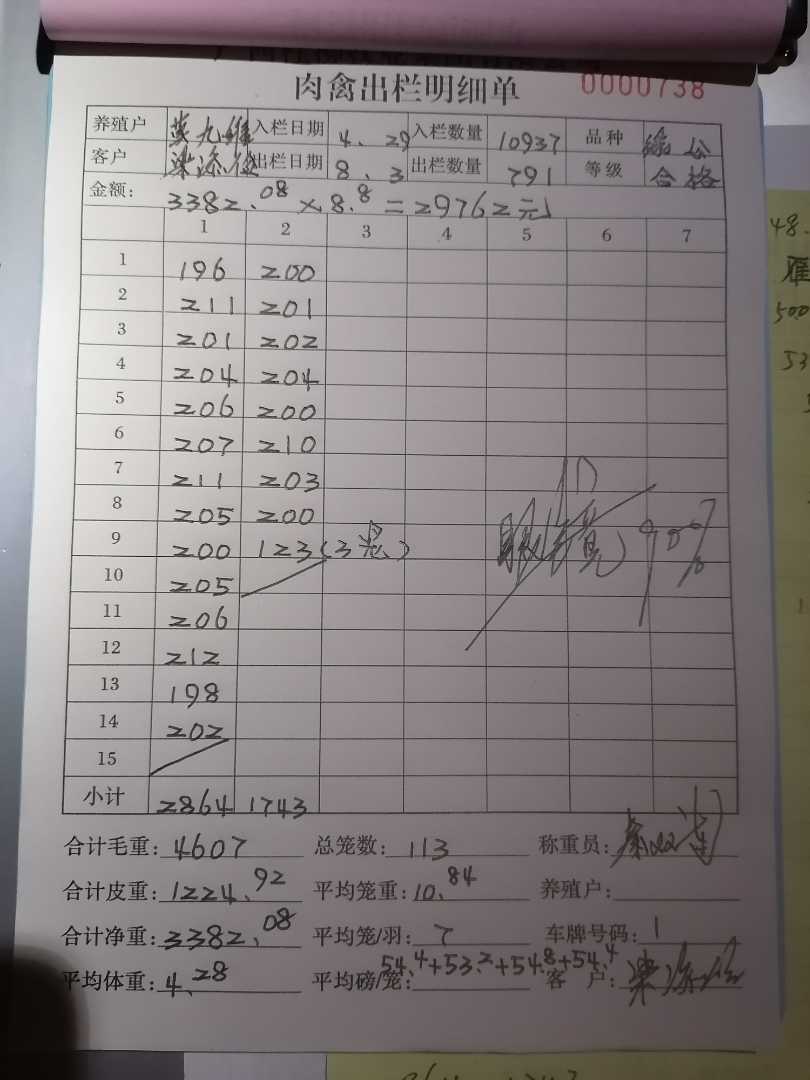 肉禽出栏明细单 0000738
养殖户 入栏日期 4.29 入栏数量 10937 品种
客户 梁添 出栏日期 8.3 出栏数量 791 等级 合格
金额: 3382.08×8.8=29762元
1 2 3 4 5 6 7
1 196 200
2 211 201
3 201 202
4 204 204
5 206 200
6 207 210
7 211 203
8 205 200
9 200 123(3笼) 90%
10 205
11 206
12 212
13 198
14 202
15
小计 2864 1743
合计毛重: 4607 总笼数: 113 称重员:
合计皮重: 1224.92 平均笼重: 10.84 养殖户:
合计净重: 3382.08 平均笼/羽: 7 车牌号码: 1
平均体重: 4.28 平均磅/笼: 54.4+53.2+54.8+54.4 客户:
48.
50.0
53